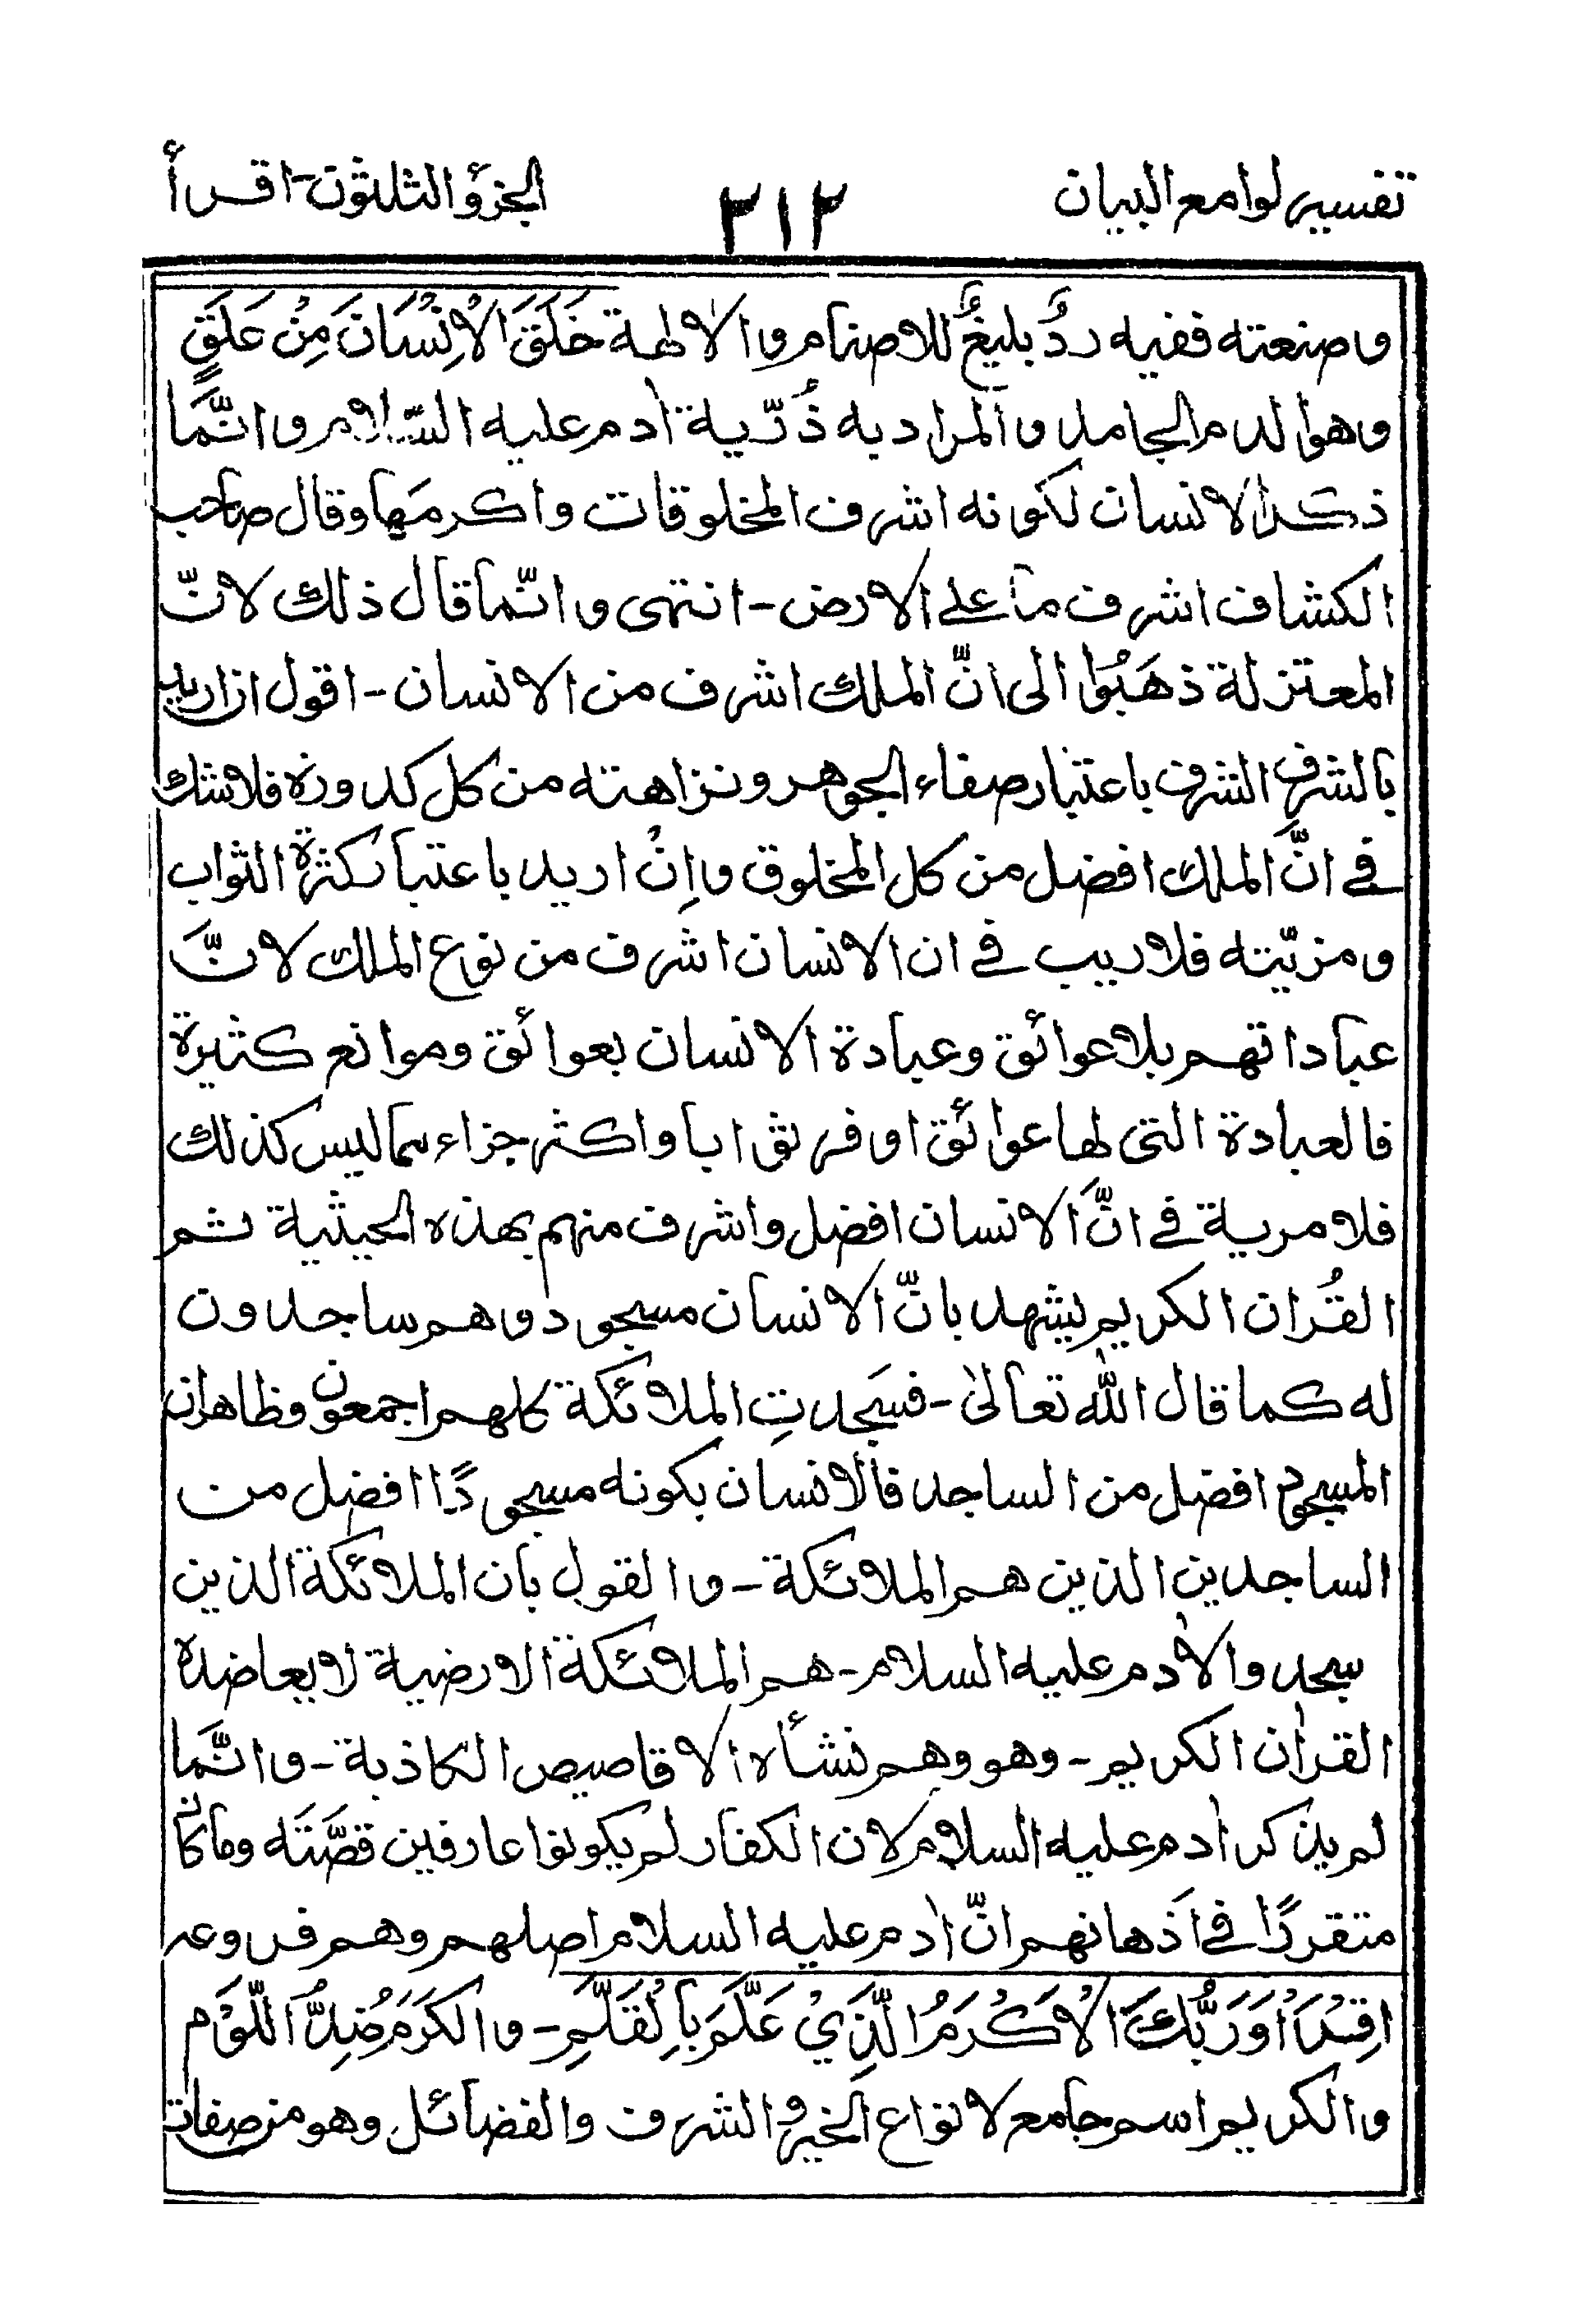 تفسير لوامع البيان
٢١٢
الجزؤ الثلثون - اقرأ
وصنعته ففيه ردٌّ بليغٌ للاصنام والاٰلهة خَلَقَ الْاِنْسَانَ مِنْ عَلَقٍ
وهو الدم الجامد والمراد به ذُرّية اٰدم عليه السّلام وانَّمَا
ذكر الانسان لكونه اشرف المخلوقات واكرمَها وقال صاحب
الكشاف اشرف ما على الارض - انتهى وانّما قال ذلك لانّ
المعتزلة ذهَبُوا الى انّ الملك اشرف من الانسان - اقول ان اريد
بالشرف الشرف باعتبار صفاء الجوهر ونزاهته من كل كدورة فلا شك
في انَّ الملك افضل من كل المخلوق وإنْ اريد باعتبار كثرة الثواب
ومزيّته فلا ريب في ان الانسان اشرف من نوع الملك لانَّ
عباداتهم بلا عوائق وعبادة الانسان بعوائق وموانع كثيرة
فالعبادة التى لها عوائق اوفر ثوابا واكثر جزاء مما ليس كذلك
فلا مرية في انَّ الانسان افضل واشرف منهم بهذه الحيثية ثم
القُراٰن الكريم يشهد بانّ الانسان مسجود وهم ساجدون
له كما قال اللّٰه تعالىٰ - فسَجدتِ الملائكة كلهم اجمعون وظاهر ان
المسجود افضل من الساجد فالانسان بكونه مسجودًا افضل من
الساجدين الذين هم الملائكة - والقول بان الملائكة الذين
سجدوا لاٰدم عليه السلام - هم الملائكة الارضية لا يعاضده
القراٰن الكريم - وهو وهم نشأه الاقاصيص الكاذبة - وانَّمَا
لم يذكر اٰدم عليه السلام لان الكفار لم يكونوا عارفين قصَّتَه وما كان
متقررًا في اذهانهم انّ اٰدم عليه السلام اصلهم وهم فروعه
اِقْرَأْ وَرَبُّكَ الْاَكْرَمُ الَّذِيْ عَلَّمَ بِالْقَلَمِ - والكَرَمُ ضِدُّ اللَّوْم
والكريم اسم جامع لانواع الخير والشرف والفضائل وهو من صفات